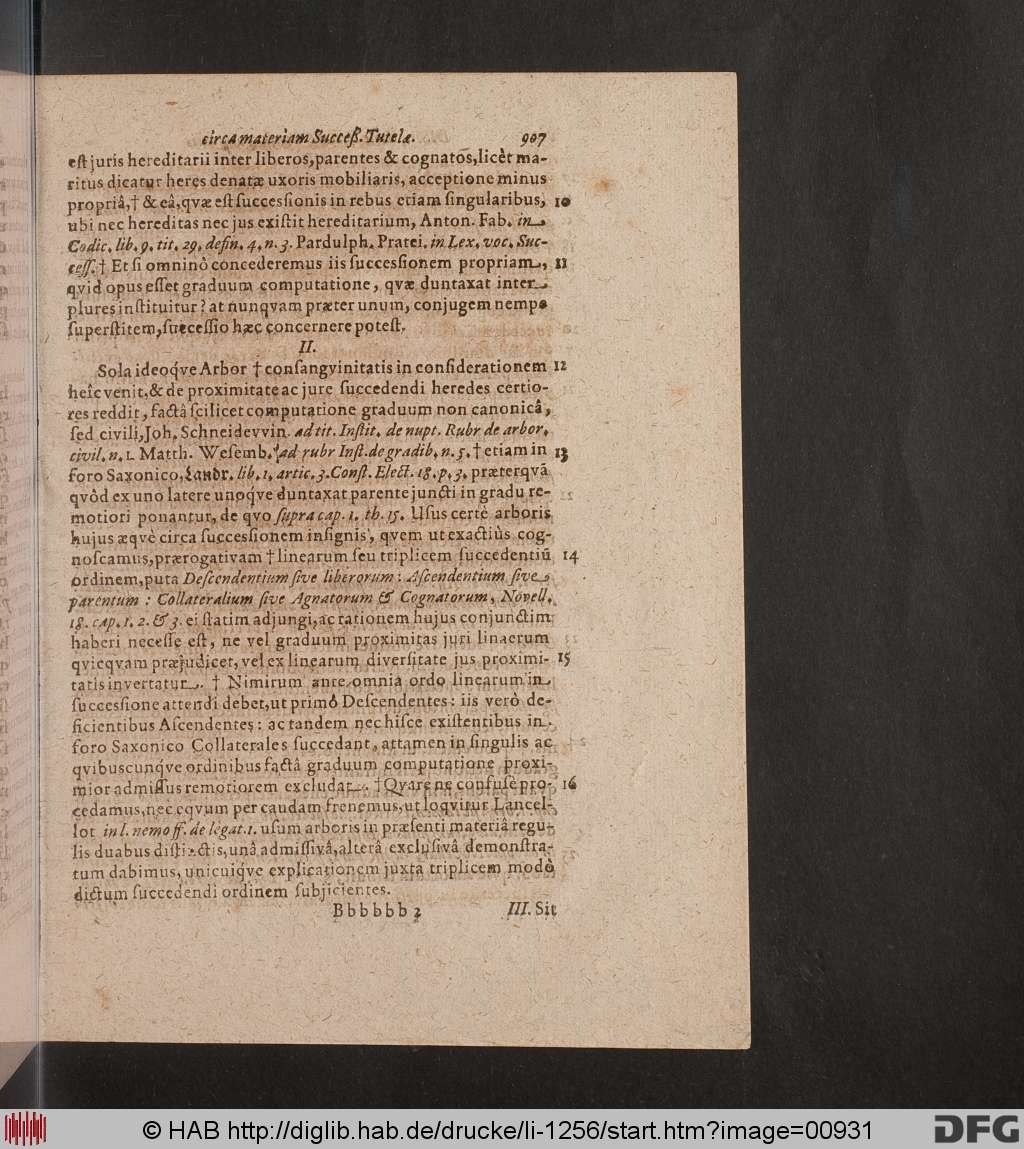 circa materiam Succeß. Tutelæ. 907
est juris hereditarii inter liberos, parentes & cognatos, licèt ma-
ritus dicatur heres denatæ uxoris mobiliaris, acceptione minus
propriâ,† & eâ, qvæ est successionis in rebus etiam singularibus, 10
ubi nec hereditas nec jus existit hereditarium, Anton. Fab. in
Codic. lib. 9. tit. 29. defin. 4. n. 3. Pardulph. Pratei. in Lex. voc. Suc-
cess. † Et si omninò concederemus iis successionem propriam, 11
qvid opus esset graduum computatione, qvæ duntaxat inter
plures instituitur? at nunqvam præter unum, conjugem nempe
superstitem, successio hæc concernere potest.
II.
Sola ideoqve Arbor † consangvinitatis in considerationem 12
heîc venit, & de proximitate ac jure succedendi heredes certio-
res reddit, factâ scilicet computatione graduum non canonicâ,
sed civili, Joh. Schneidevvin. ad tit. Instit. de nupt. Rubr de arbor.
civil. n. 1. Matth. Wesemb. ad rubr Inst. de gradib. n. 5. † etiam in 13
foro Saxonico, Landr. lib. 1. artic. 3. Const. Elect. 18. p. 3. præterqvā
qvòd ex uno latere unoqve duntaxat parente juncti in gradu re-
motiori ponantur, de qvo supra cap. 1. th. 15. Usus certè arboris
hujus æqvè circa successionem insignis, qvem ut exactiùs cog-
noscamus, prærogativam † linearum seu triplicem succedentiū 14
ordinem, puta Descendentium sive liberorum: Ascendentium sive
parentum: Collateralium sive Agnatorum & Cognatorum, Novell.
18. cap. 1. 2. & 3. ei statim adjungi, ac rationem hujus conjunctim
haberi necesse est, ne vel graduum proximitas juri linaerum
qvicqvam præjudicet, vel ex linearum diversitate jus proximi- 15
tatis invertatur. † Nimirum ante omnia ordo linearum in
successione attendi debet, ut primò Descendentes: iis verò de-
ficientibus Ascendentes: ac tandem nec hisce existentibus in
foro Saxonico Collaterales succedant, attamen in singulis ac
qvibuscunqve ordinibus factâ graduum computatione proxi-
mior admissus remotiorem excludat. † Qvare ne confusè pro- 16
cedamus, nec eqvum per caudam frenemus, ut loqvitur Lancel-
lot in l. nemo ff. de legat. 1. usum arboris in præsenti materiâ regu-
lis duabus distinctis, unâ admissivâ, alterâ exclusivâ demonstra-
tum dabimus, unicuiqve explicationem juxta triplicem modò
dictum succedendi ordinem subjicientes.
Bbbbbb 2 III. Sit
© HAB http://diglib.hab.de/drucke/li-1256/start.htm?image=00931
DFG